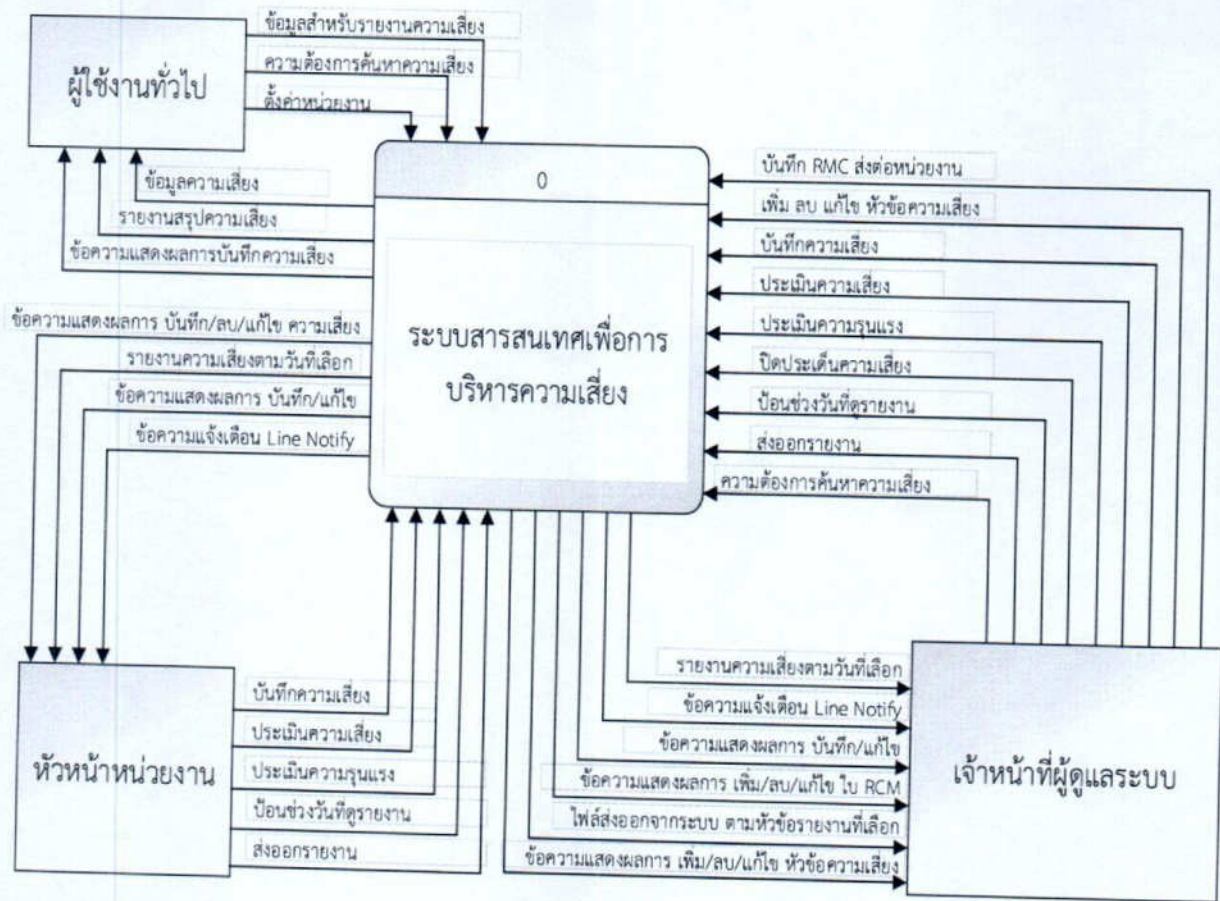 ข้อมูลสำหรับรายงานความเสี่ยง
ความต้องการค้นหาความเสี่ยง
ตั้งค่าหน่วยงาน
ผู้ใช้งานทั่วไป
ข้อมูลความเสี่ยง
รายงานสรุปความเสี่ยง
ข้อความแสดงผลการบันทึกความเสี่ยง
0
ระบบสารสนเทศเพื่อการ
บริหารความเสี่ยง
บันทึก RMC ส่งต่อหน่วยงาน
เพิ่ม ลบ แก้ไข หัวข้อความเสี่ยง
บันทึกความเสี่ยง
ประเมินความเสี่ยง
ประเมินความรุนแรง
ปิดประเด็นความเสี่ยง
ป้อนช่วงวันที่ดูรายงาน
ส่งออกรายงาน
ความต้องการค้นหาความเสี่ยง
ข้อความแสดงผลการ บันทึก/ลบ/แก้ไข ความเสี่ยง
รายงานความเสี่ยงตามวันที่เลือก
ข้อความแสดงผลการ บันทึก/แก้ไข
ข้อความแจ้งเตือน Line Notify
หัวหน้าหน่วยงาน
บันทึกความเสี่ยง
ประเมินความเสี่ยง
ประเมินความรุนแรง
ป้อนช่วงวันที่ดูรายงาน
ส่งออกรายงาน
รายงานความเสี่ยงตามวันที่เลือก
ข้อความแจ้งเตือน Line Notify
ข้อความแสดงผลการ บันทึก/แก้ไข
ข้อความแสดงผลการ เพิ่ม/ลบ/แก้ไข ใบ RCM
ไฟล์ส่งออกจากระบบ ตามหัวข้อรายงานที่เลือก
ข้อความแสดงผลการ เพิ่ม/ลบ/แก้ไข หัวข้อความเสี่ยง
เจ้าหน้าที่ผู้ดูแลระบบ